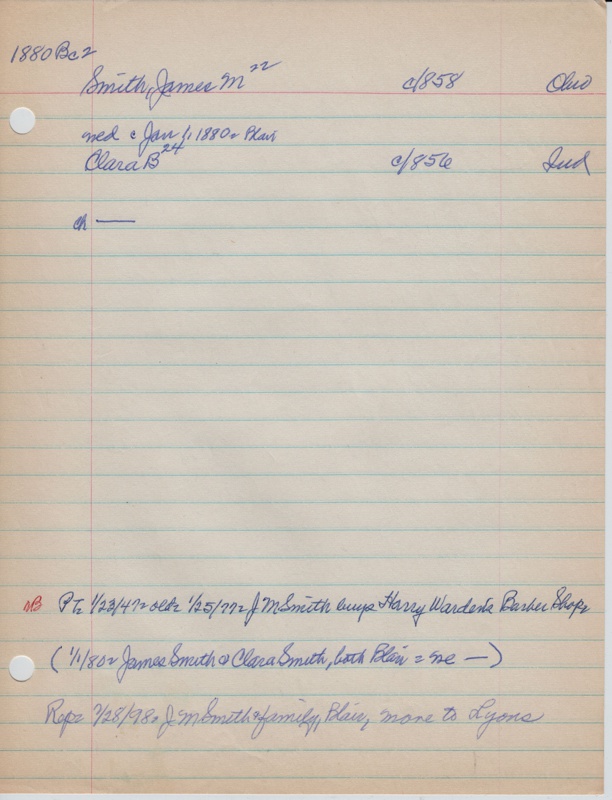 1880 Bc2
Smith, James M 22 c1858 Ohio
med c Jan 1, 1880 = Blair
Clara B 24 c1856 Ind
ch —
NB PT= 1/23/47 = old = 1/25/77 = J M Smith buys Harry Warden's Barber Shop
( 1/1/80 = James Smith @ Clara Smith, both Blair = me — )
Rep= 7/28/98 = J M Smith & family, Blair, move to Lyons